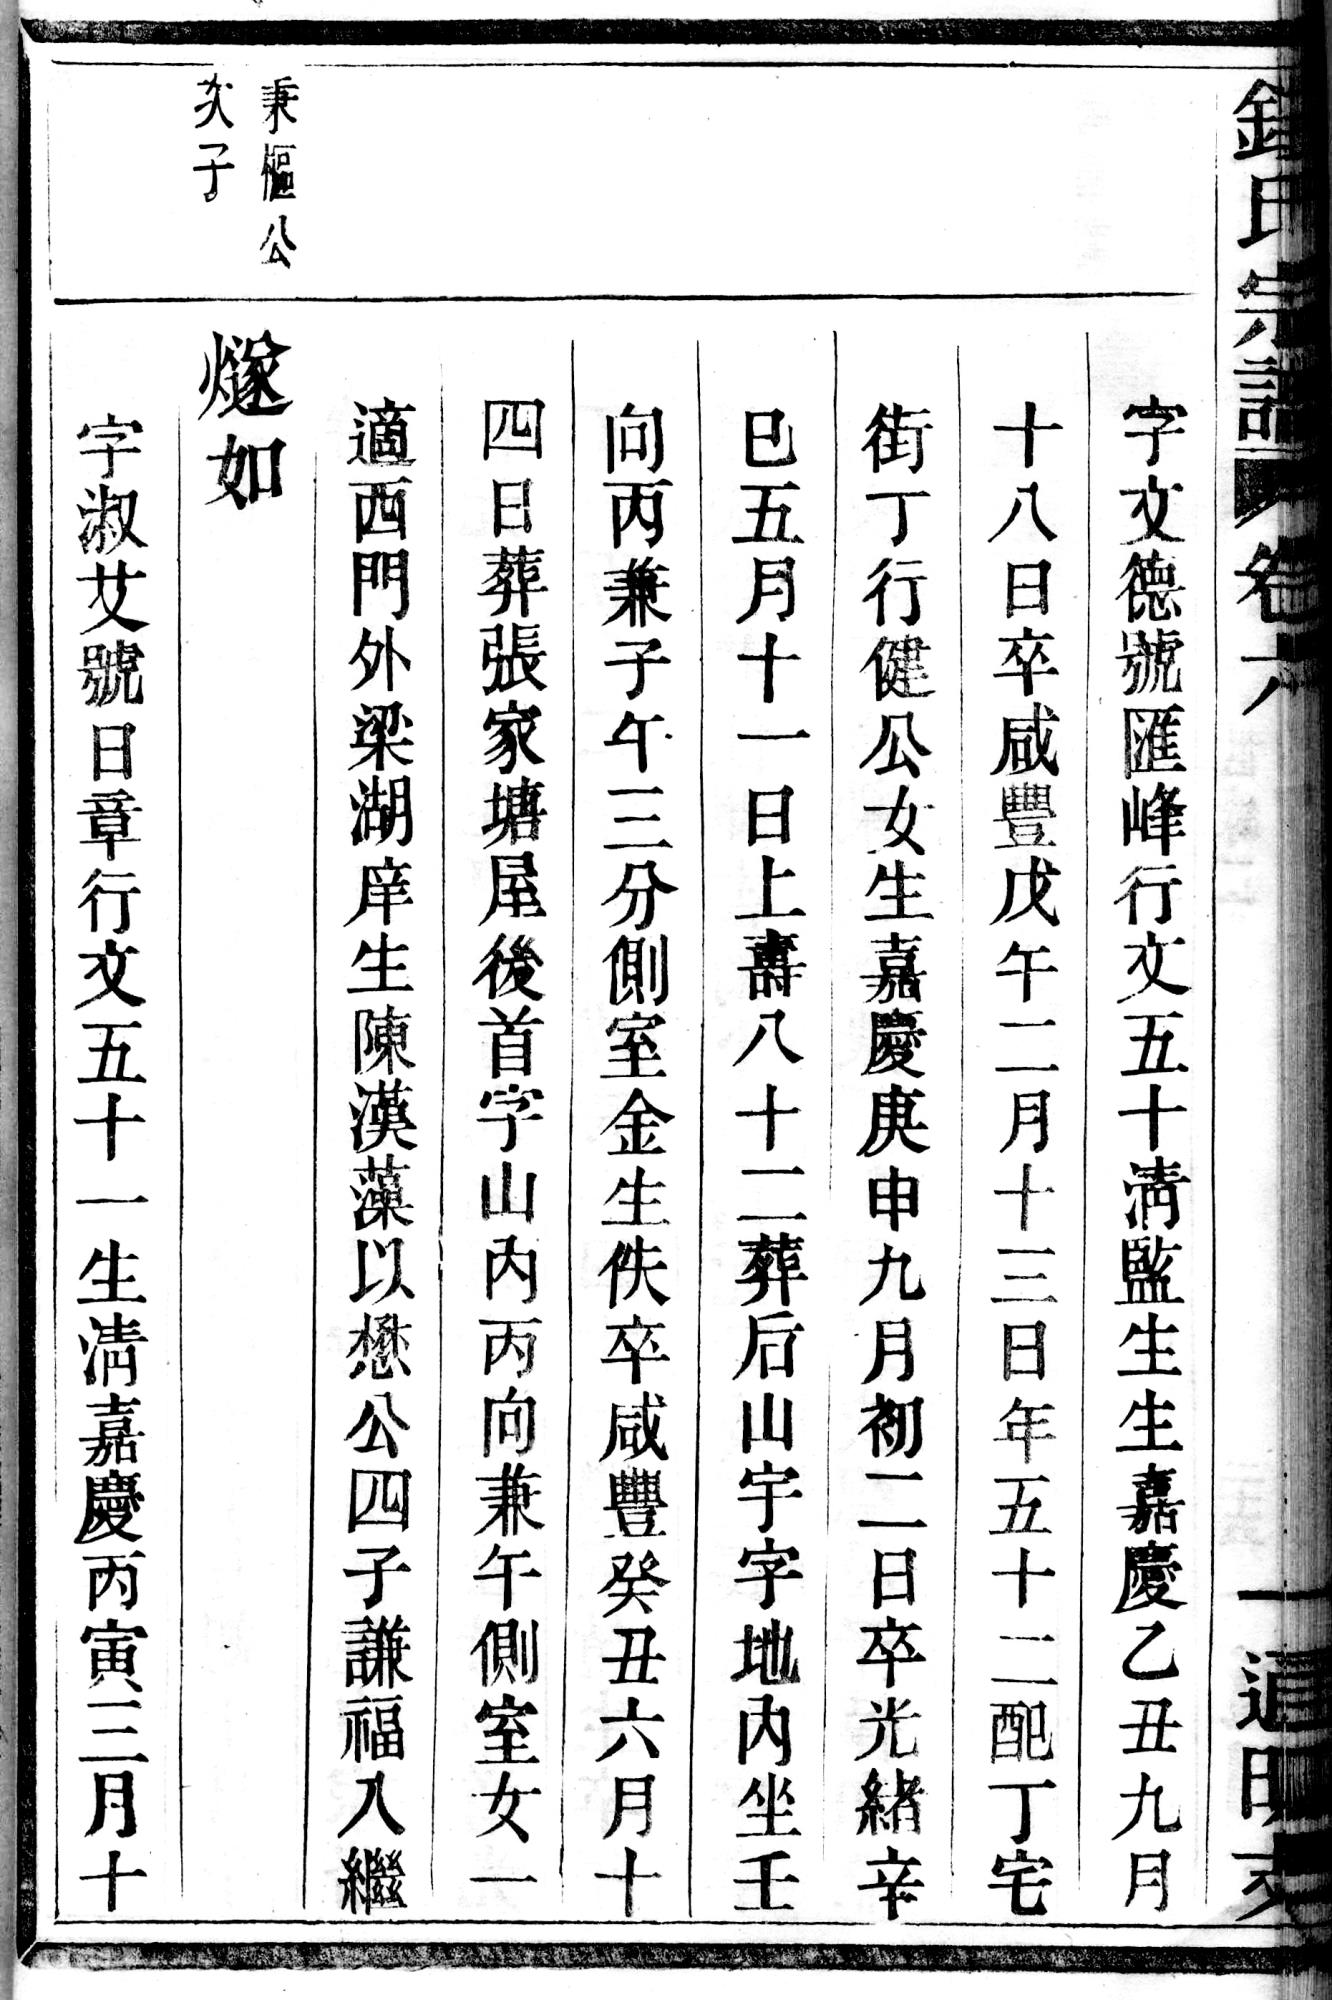 氏宗譜 卷六
字文德號匯峰行文五十淸監生生嘉慶乙丑九月
十八日卒咸豐戊午二月十三日年五十二配丁宅
街丁行健公女生嘉慶庚申九月初二日卒光緒辛
巳五月十一日上壽八十二葬后山宇字地內坐壬
向丙兼子午三分側室金生佚卒咸豐癸丑六月十
四日葬張家塘屋後首字山內丙向兼午側室女一
適西門外梁湖庠生陳漢藻以懋公四子謙福入繼
秉樞公
次子
燧如
字淑艾號日章行文五十一生淸嘉慶丙寅三月十